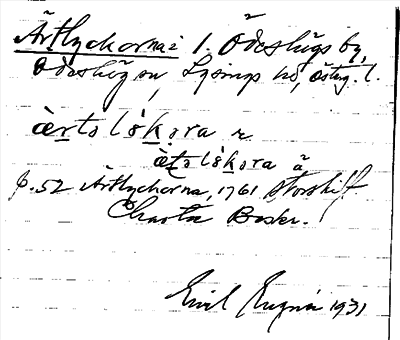 Ärtlyckorna i l. Ödeshögs by,
Ödeshög sn, Lysings hd, Östg. l.
ærtəlökəra r.
ætəlökəra ā
p. 52 Ärtlyckorna, 1761 storskift.
Charta Beskr.
Emil 1931